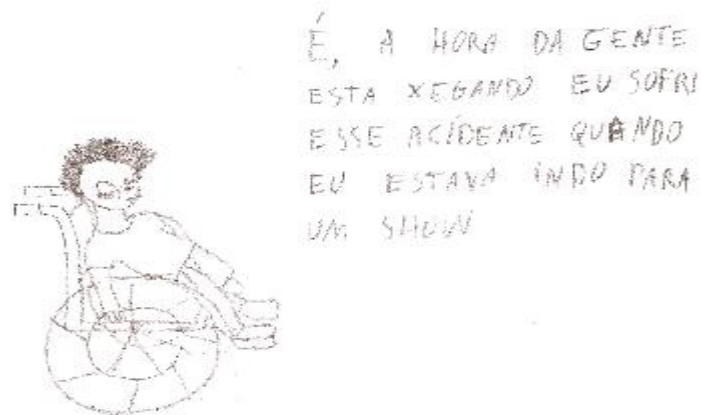 É, A HORA DA GENTE
ESTA XEGANDO EU SOFRI
ESSE ACIDENTE QUANDO
EU ESTAVA INDO PARA
UM SHOW